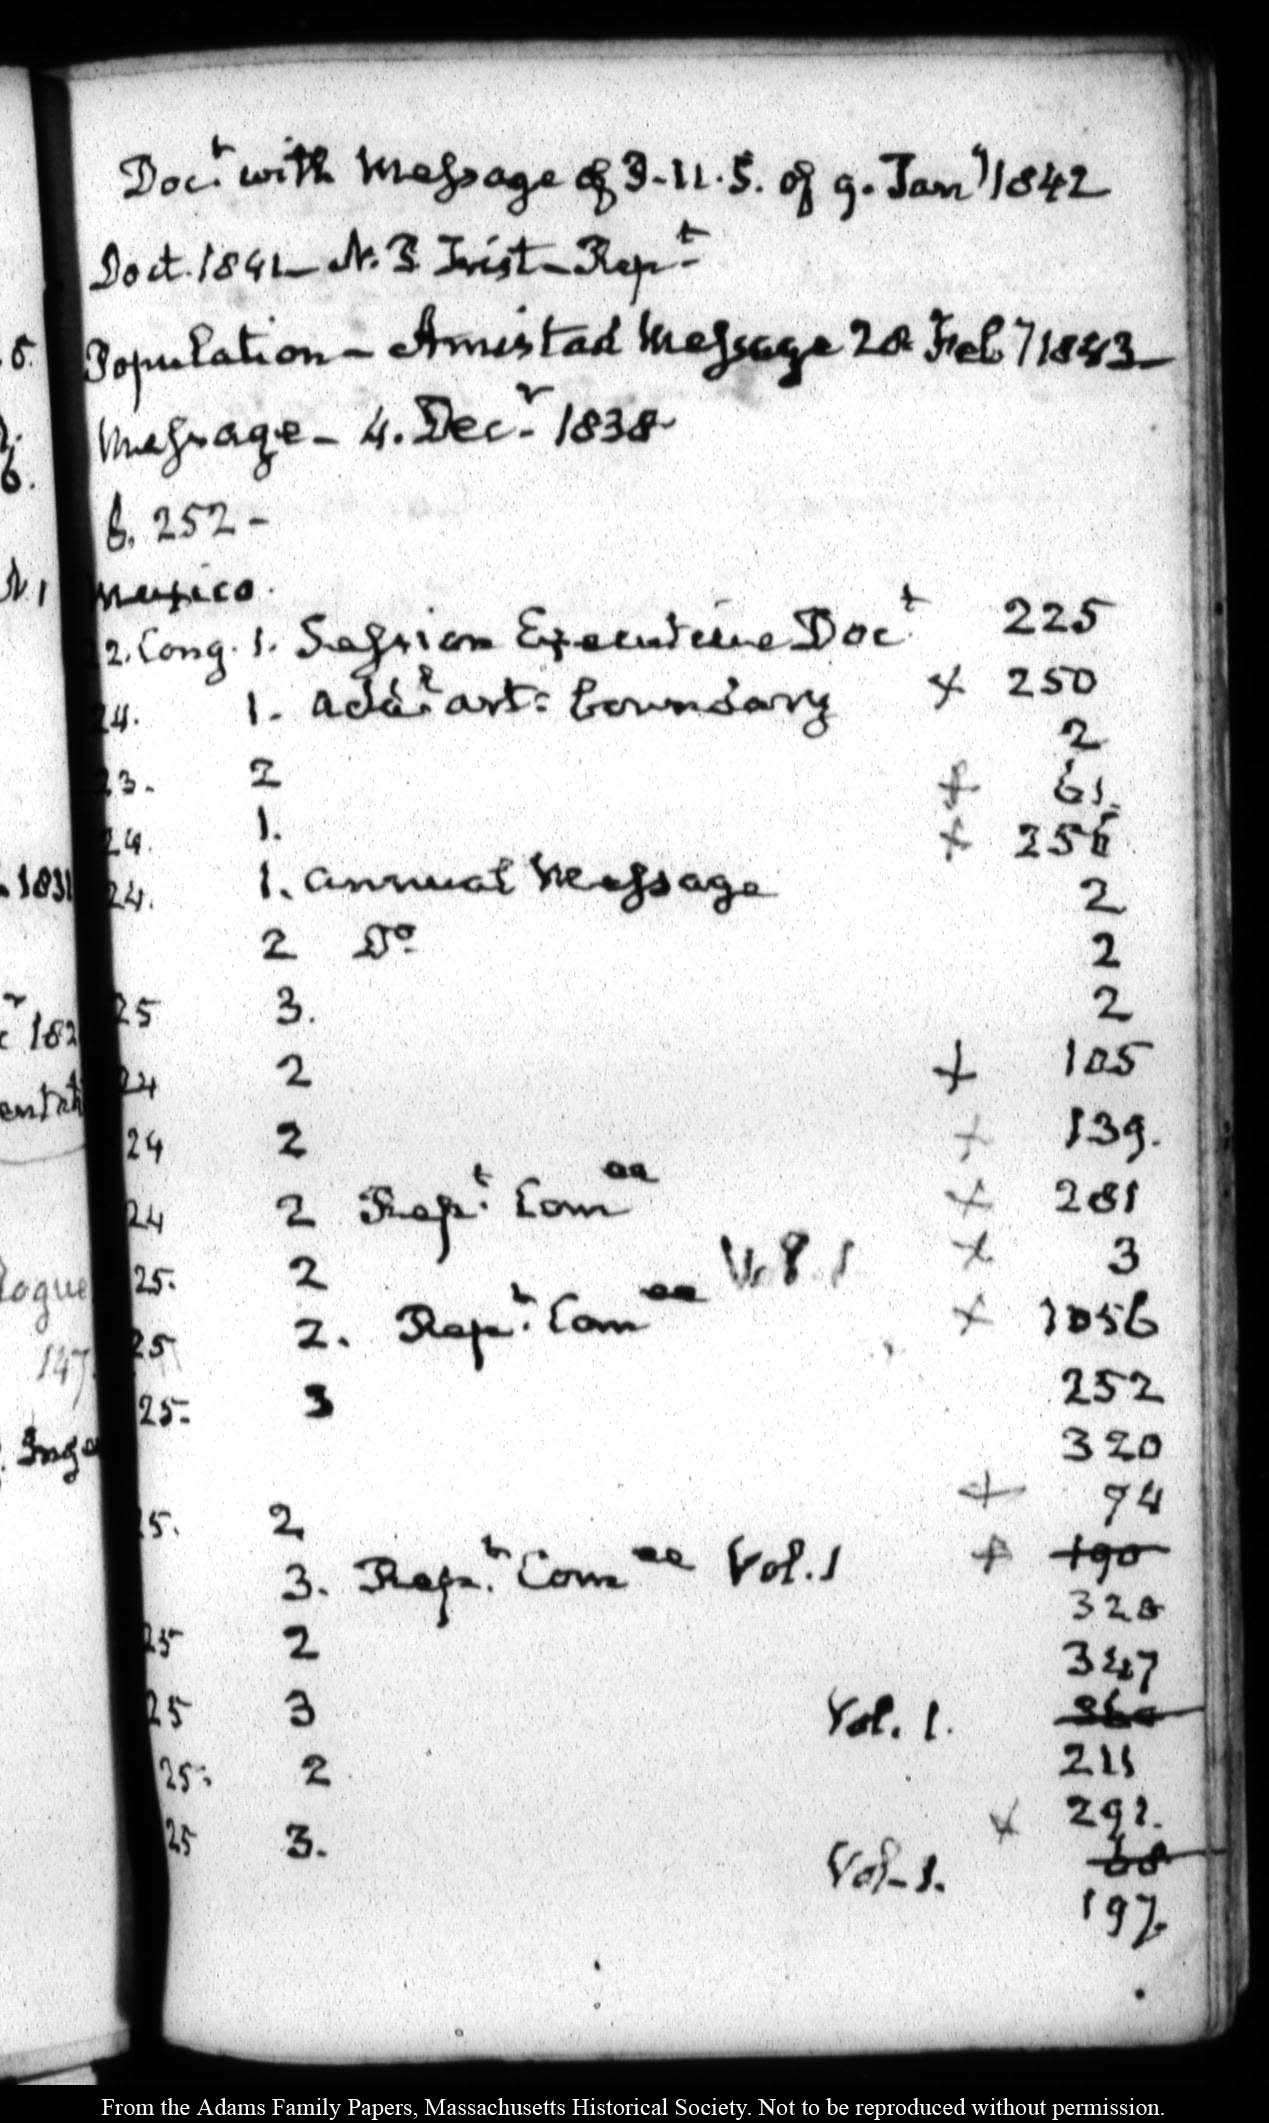 Doc.t with Message of P. U. S. of 9. Jan.y 1842
Doct. 1841 - N. P. Trist - Rep.t
Population - Amistad Message 28 Feb.y 1843
Message - 4. Dec.r 1838
6. 252 -
Mexico.
22. Cong. 1. Session Executive Doc.t 225
24. 1. add.l art: boundary x 250
2
23. 2 x 61.
24. 1. x 256
24. 1. annual Message 2
2 D.o 2
25 3. 2
24 2 x 105
24 2 x 139.
24 2 Rep.t Com.ee x 281
25. 2 Vol. 1 x 3
25 2. Rep.t Com.ee x 1056
25. 3 252
320
25. 2 x 74
3. Rep.t Com.ee Vol. 1 x 190
320
25 2 347
25 3 Vol. 1.
25. 2 211
x 291.
25 3. Vol. 1. 68
197.
5.
6.
N. 1
1831
182
logue
147
Inge
From the Adams Family Papers, Massachusetts Historical Society. Not to be reproduced without permission.